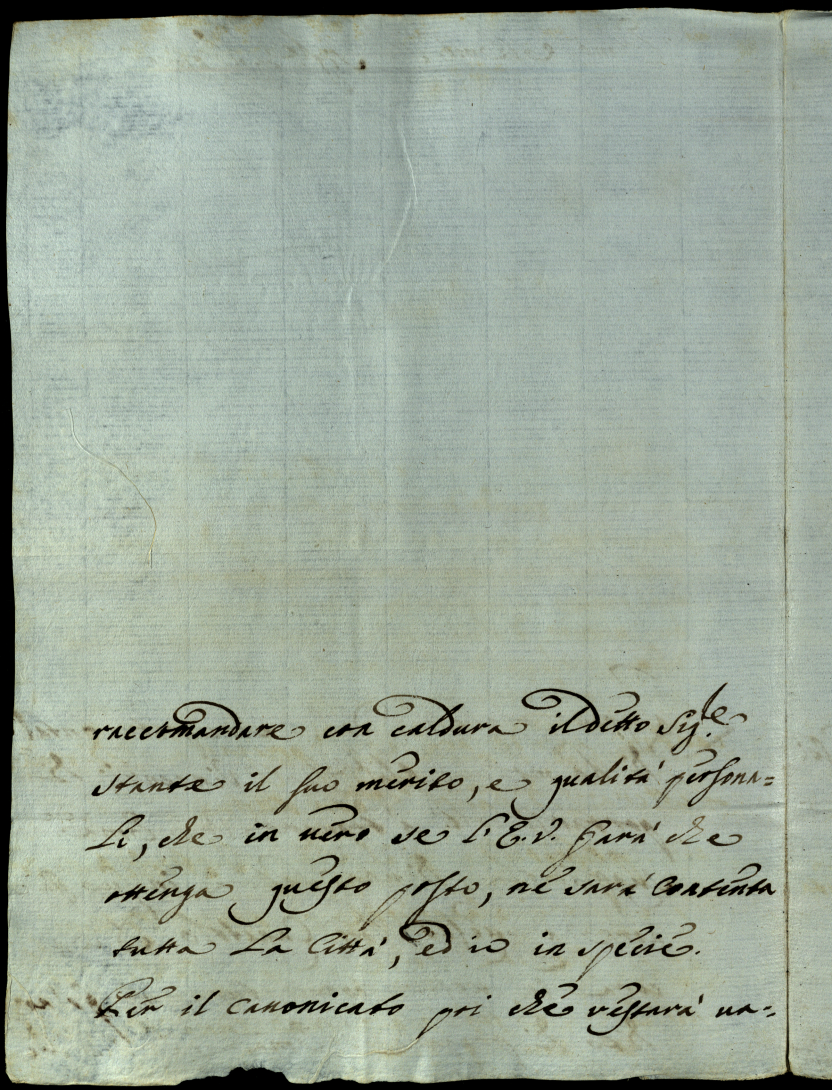 raccomandare con caldura il detto Sig.re
stante il suo merito, e qualità persona=
li, che in vero se l'E.V. farà che
ottenga questo posto, ne sarà contenta
tutta la Città, ed io in specie.
Per il canonicato poi che restarà va=